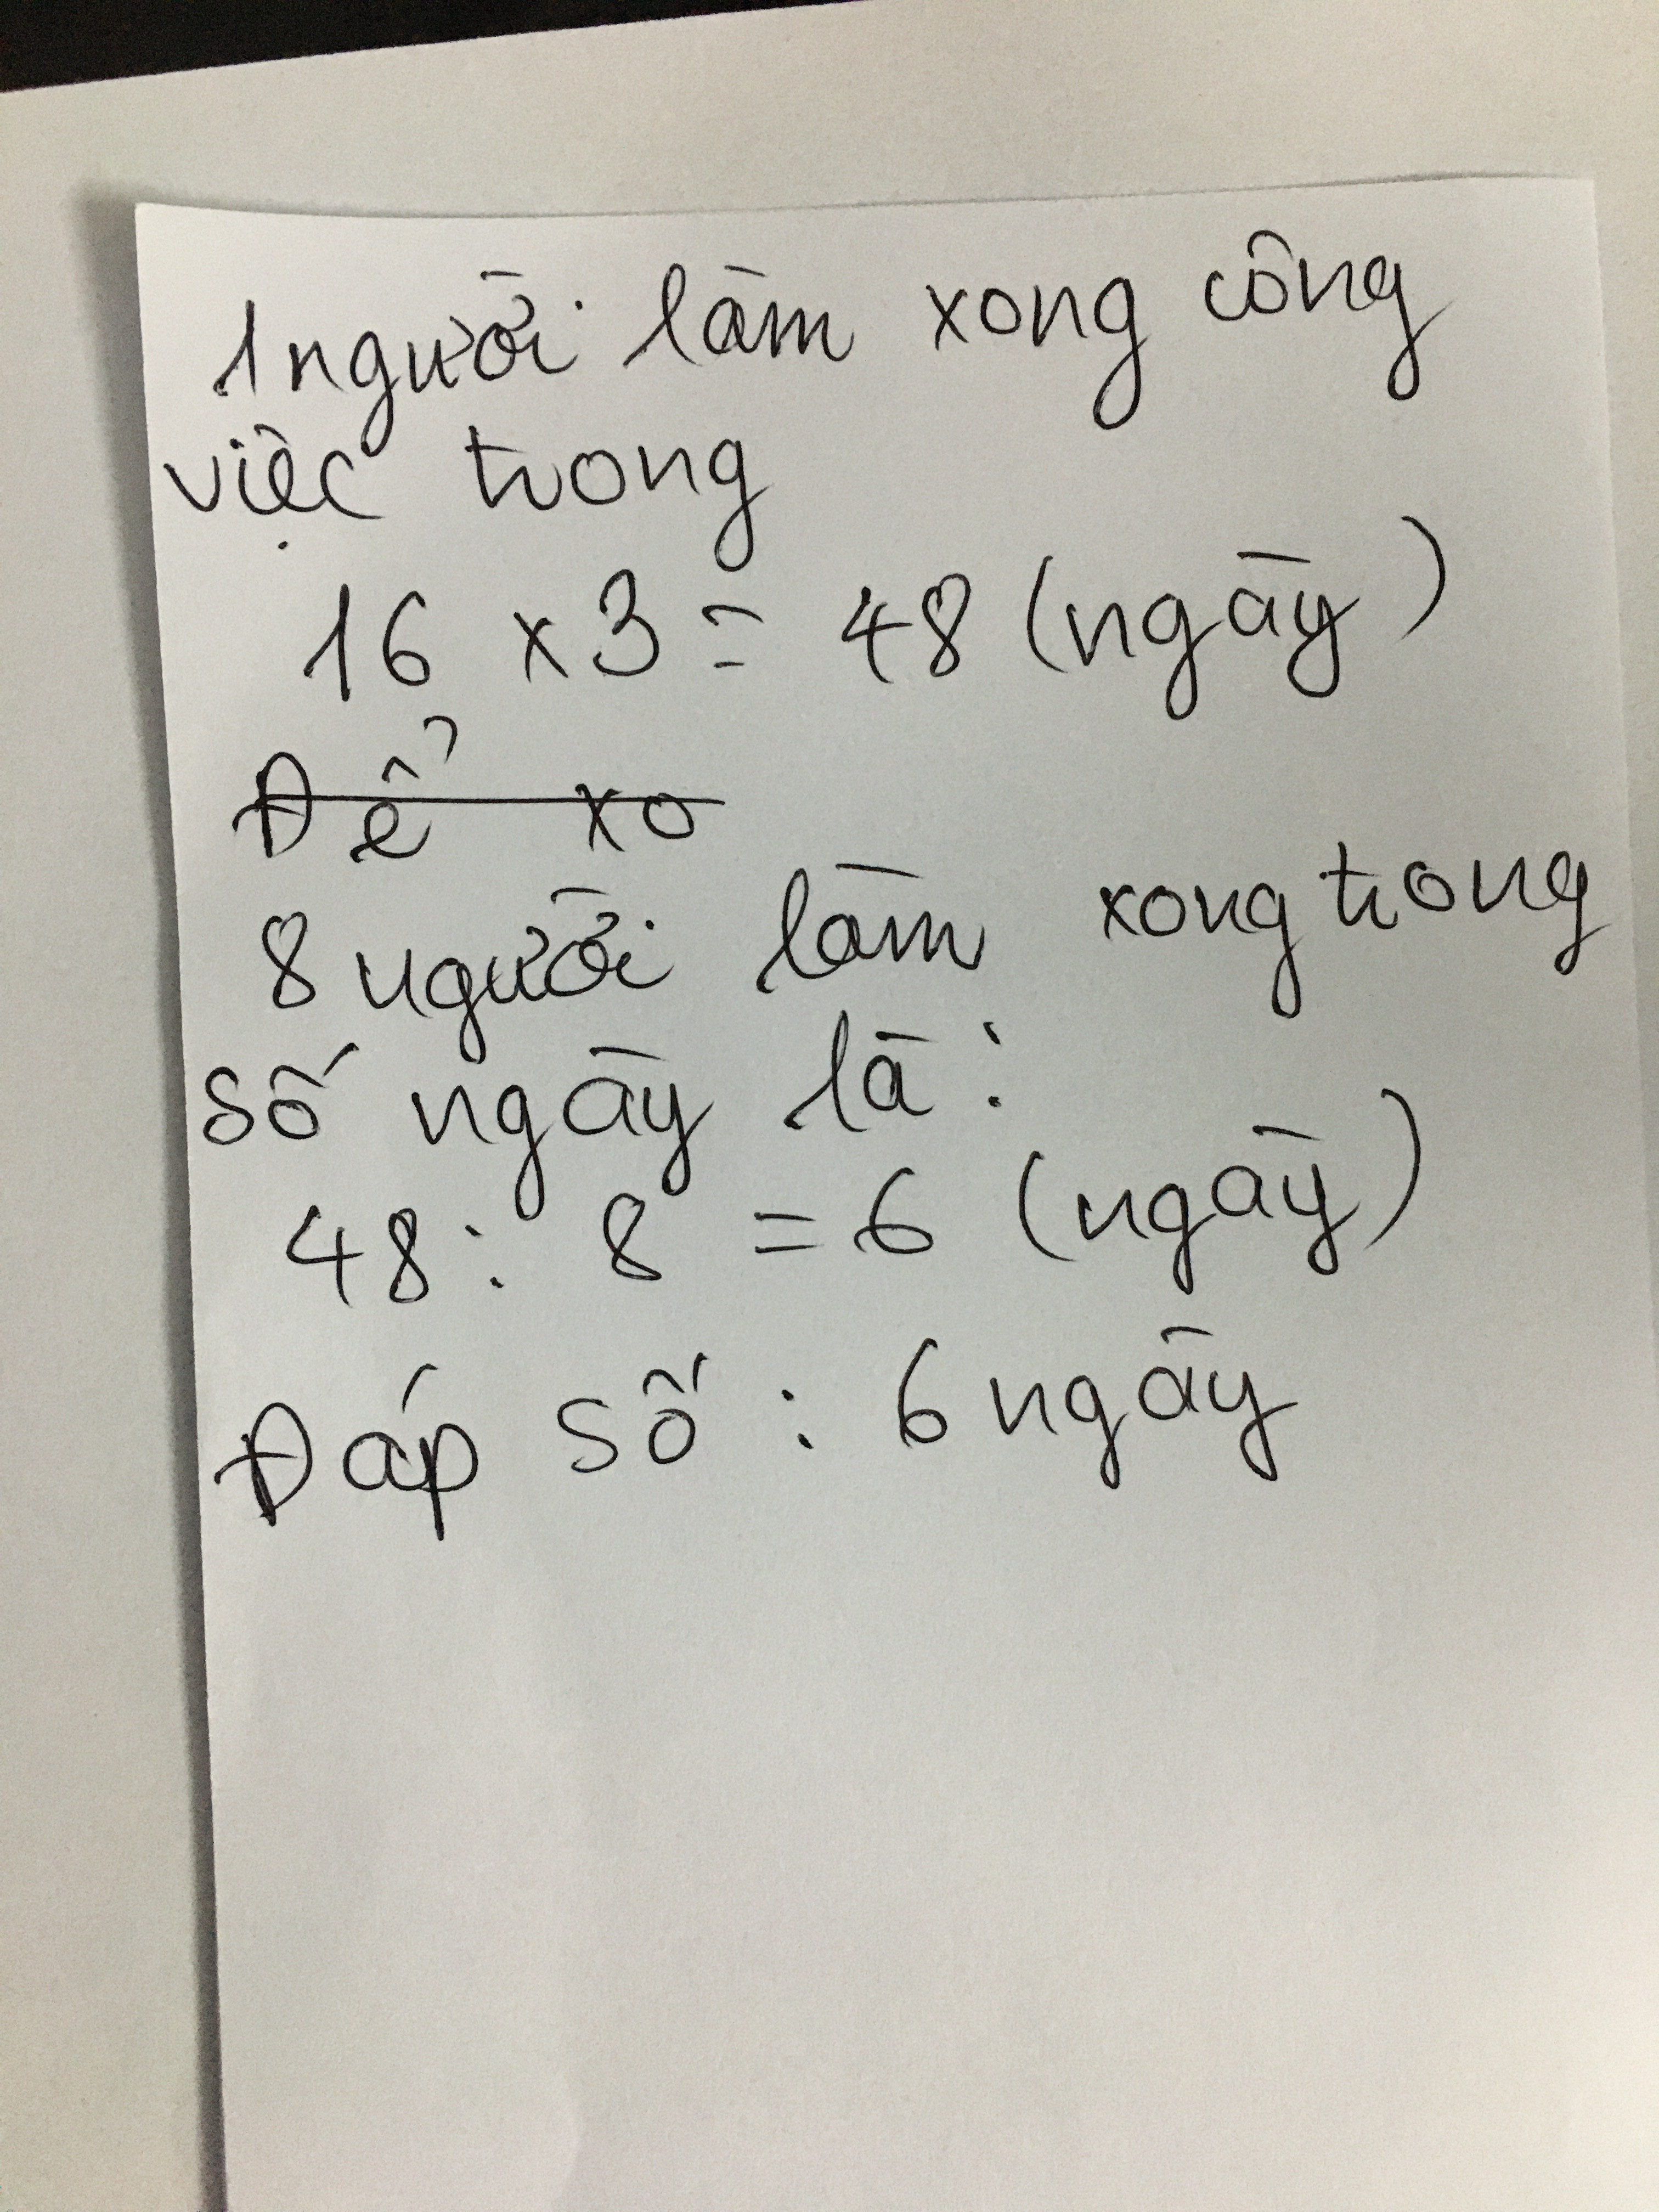 1 người làm xong công
việc trong
16 x 3 = 48 (ngày)
Để xo
8 người làm xong trong
số ngày là :
48 : 8 = 6 (ngày)
Đáp số : 6 ngày